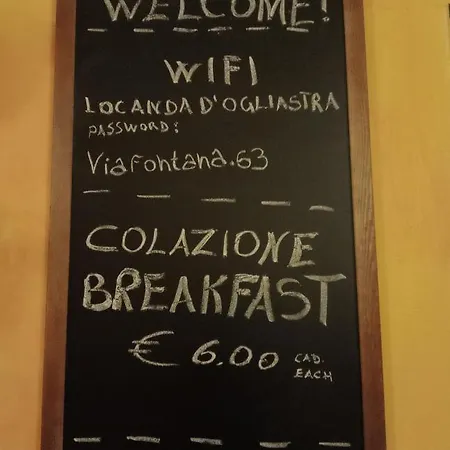 WELCOME!
WIFI
LOCANDA D'OGLIASTRA
PASSWORD:
Viafontana.63
COLAZIONE
BREAKFAST
€ 6.00 CAD.
EACH